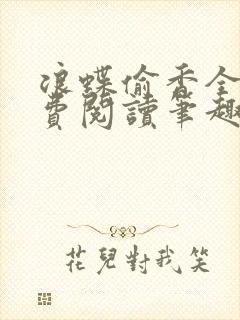 浪蝶偷香全
費閱讀筆趣
花兒對我笑